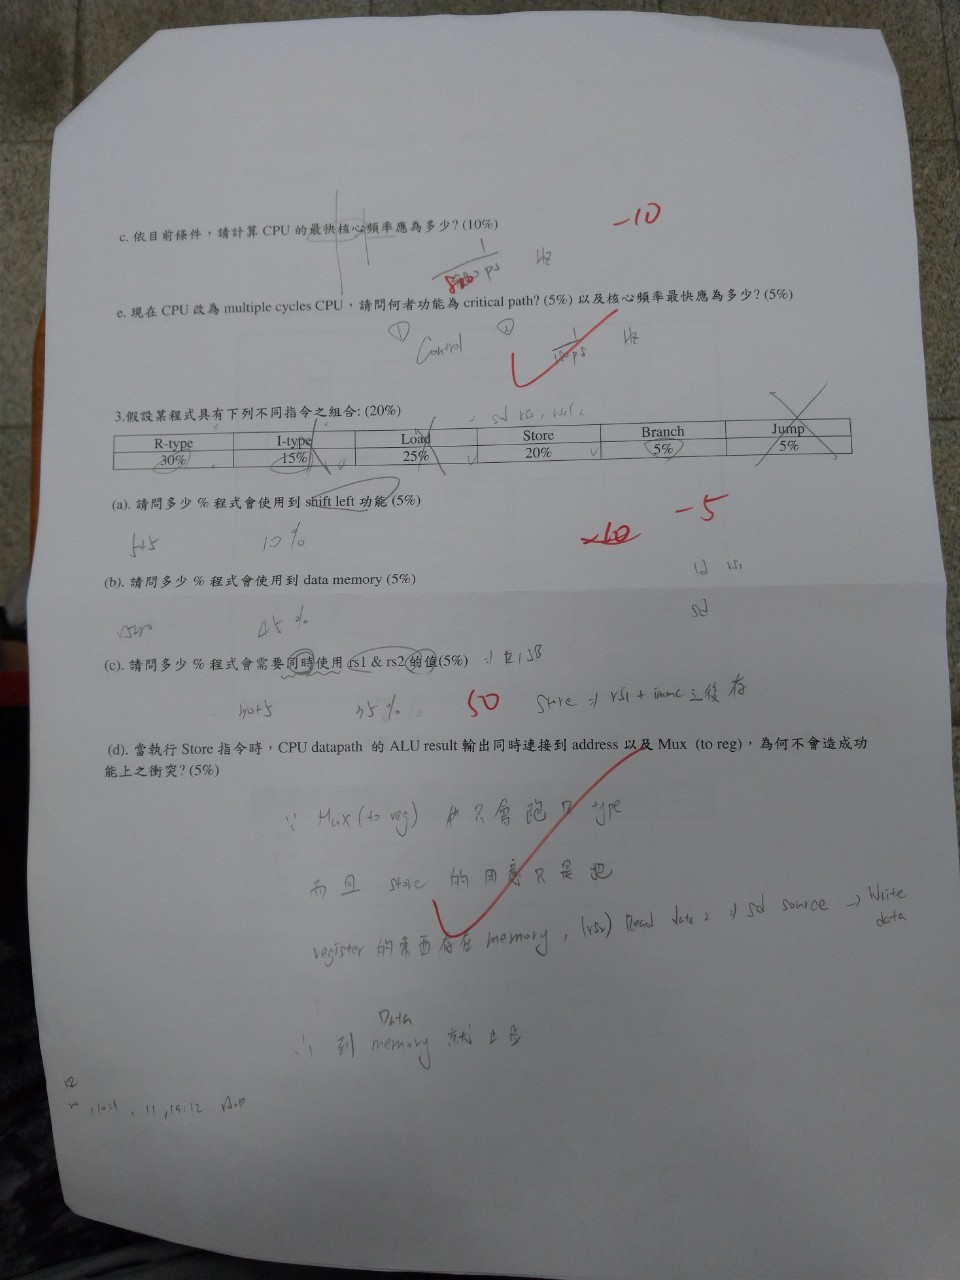 c. 依目前條件，請計算 CPU 的最快核心頻率應為多少? (10%)
-10
1
ps Hz
e. 現在 CPU 改為 multiple cycles CPU，請問何者功能為 critical path? (5%) 以及核心頻率最快應為多少? (5%)
① Control ② 1 Hz
ps
3.假設某程式具有下列不同指令之組合: (20%)
R-type I-type Load Store Branch Jump
30% 15% 25% 20% 5% 5%
(a). 請問多少 % 程式會使用到 shift left 功能 (5%)
-5
5+5 10%
(b). 請問多少 % 程式會使用到 data memory (5%)
ld rs1
sd
45%
(c). 請問多少 % 程式會需要同時使用 rs1 & rs2 的值(5%)
30+5 35% 50 Store rs1 + imme 之後存
(d). 當執行 Store 指令時，CPU datapath 的 ALU result 輸出同時連接到 address 以及 Mux (to reg)，為何不會造成功
能上之衝突? (5%)
∵ Mux (to reg) 只會跑 R type
而且 store 的用意只是把
register 的東西存在 memory, (rs2) Read data 2 sd source → Write
data
Data
∴ 到 memory 就止步